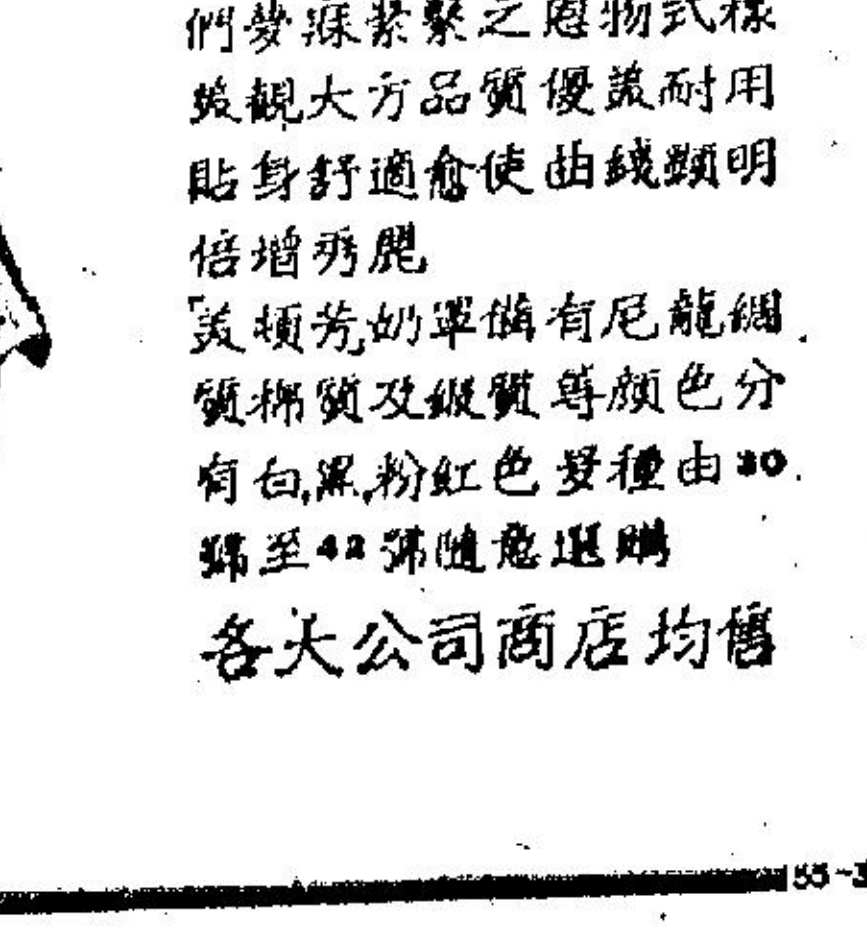 們夢寐縈繫之恩物式樣
美觀大方品質優美耐用
貼身舒適愈使曲綫顯明
倍增秀麗
「美頓芳」奶罩備有尼龍綢
質棉質及緞質等顏色分
有白,黑,粉紅色 種由30
號至42號隨意選購
各大公司商店均售
55-3